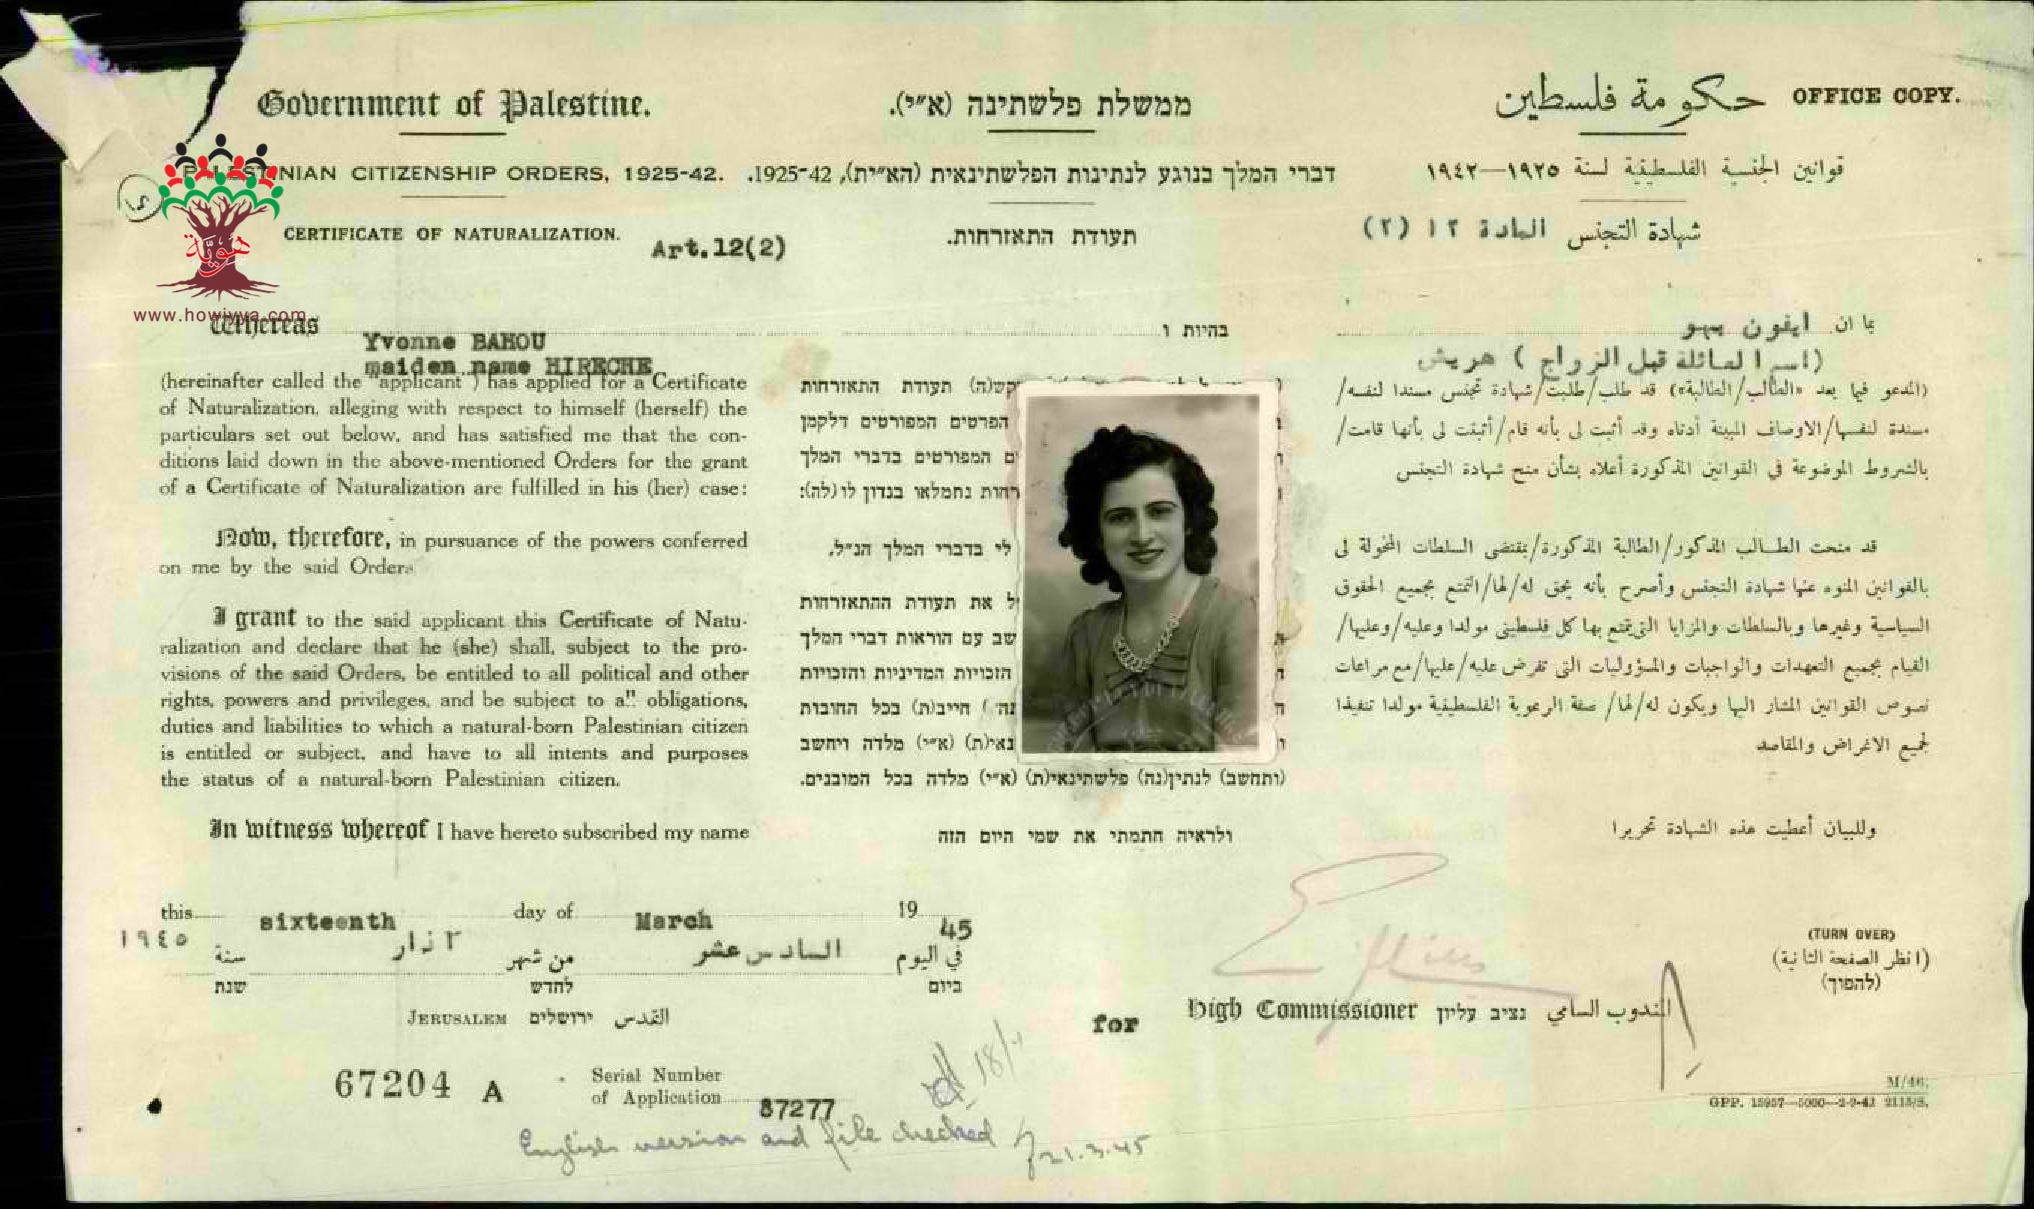 Government of Palestine.
PALESTINIAN CITIZENSHIP ORDERS, 1925-42.
CERTIFICATE OF NATURALIZATION.
Art.12(2)
هويّة
www.howiyya.com
Whereas
Yvonne BAHOU
maiden name HIRECHE
(hereinafter called the "applicant") has applied for a Certificate
of Naturalization, alleging with respect to himself (herself) the
particulars set out below, and has satisfied me that the con-
ditions laid down in the above-mentioned Orders for the grant
of a Certificate of Naturalization are fulfilled in his (her) case:
Now, therefore, in pursuance of the powers conferred
on me by the said Orders
I grant to the said applicant this Certificate of Natu-
ralization and declare that he (she) shall, subject to the pro-
visions of the said Orders, be entitled to all political and other
rights, powers and privileges, and be subject to all obligations,
duties and liabilities to which a natural-born Palestinian citizen
is entitled or subject, and have to all intents and purposes
the status of a natural-born Palestinian citizen.
In witness whereof I have hereto subscribed my name
ממשלת פלשתינה (א״י).
דברי המלך בנוגע לנתינות הפלשתינאית (הא״ית), 1925-42.
תעודת התאזרחות.
בהיות ו
קש(ה) תעודת התאזרחות
הפרטים המפורטים דלקמן
ם המפורטים בדברי המלך
רחות נתמלאו בנדון לו (לה):
לי בדברי המלך הנ״ל.
ל את תעודת ההתאזרחות
שב עם הוראות דברי המלך
הזכויות המדיניות והזכויות
נה) חייב(ת) בכל החובות
נאי(ת) (א״י) מלדה ויחשב
(ותחשב) לנתין(נה) פלשתינאי(ת) (א״י) מלדה בכל המובנים.
ולראיה חתמתי את שמי היום הזה
حكومة فلسطين
OFFICE COPY.
قوانين الجنسية الفلسطينية لسنة ١٩٢٥—١٩٤٢
شهادة التجنس المادة ١٢ (٢)
بما ان ايفون بهو
(اسم العائلة قبل الزواج) هريش
(المدعو فيما بعد «الطالب/الطالبة») قد طلب/طلبت/شهادة تجنس مسندا لنفسه/
مسندة لنفسها/الاوصاف المبينة أدناه وقد أثبت لى بأنه قام/أثبتت لى بأنها قامت/
بالشروط الموضوعة في القوانين المذكورة أعلاه بشأن منح شهادة التجنس
قد منحت الطالب المذكور/الطالبة المذكورة/بمقتضى السلطات المخولة لى
بالقوانين المنوه عنها شهادة التجنس وأصرح بأنه يحق له/لها/التمتع بجميع الحقوق
السياسية وغيرها وبالسلطات والمزايا التى يتمتع بها كل فلسطينى مولدا وعليه/وعليها/
القيام بجميع التعهدات والواجبات والمسؤوليات التى تفرض عليه/عليها/مع مراعات
نصوص القوانين المشار اليها ويكون له/لها/ صفة الرعوية الفلسطينية مولدا تنفيذا
لجميع الاغراض والمقاصد
وللبيان أعطيت هذه الشهادة تحريرا
this sixteenth day of March 1945
في اليوم السادس عشر من شهر ٢ذار سنة ١٩٤٥
ביום לחדש שנת
JERUSALEM ירושלים القدس
(TURN OVER)
(انظر الصفحة الثانية)
(להפוך)
for High Commissioner נציב עליון المندوب السامي
67204 A
Serial Number
of Application 87277
18/
English version and file checked
21.3.45
M/46.
GPP. 15957—5000—2-9-42 2115/S.